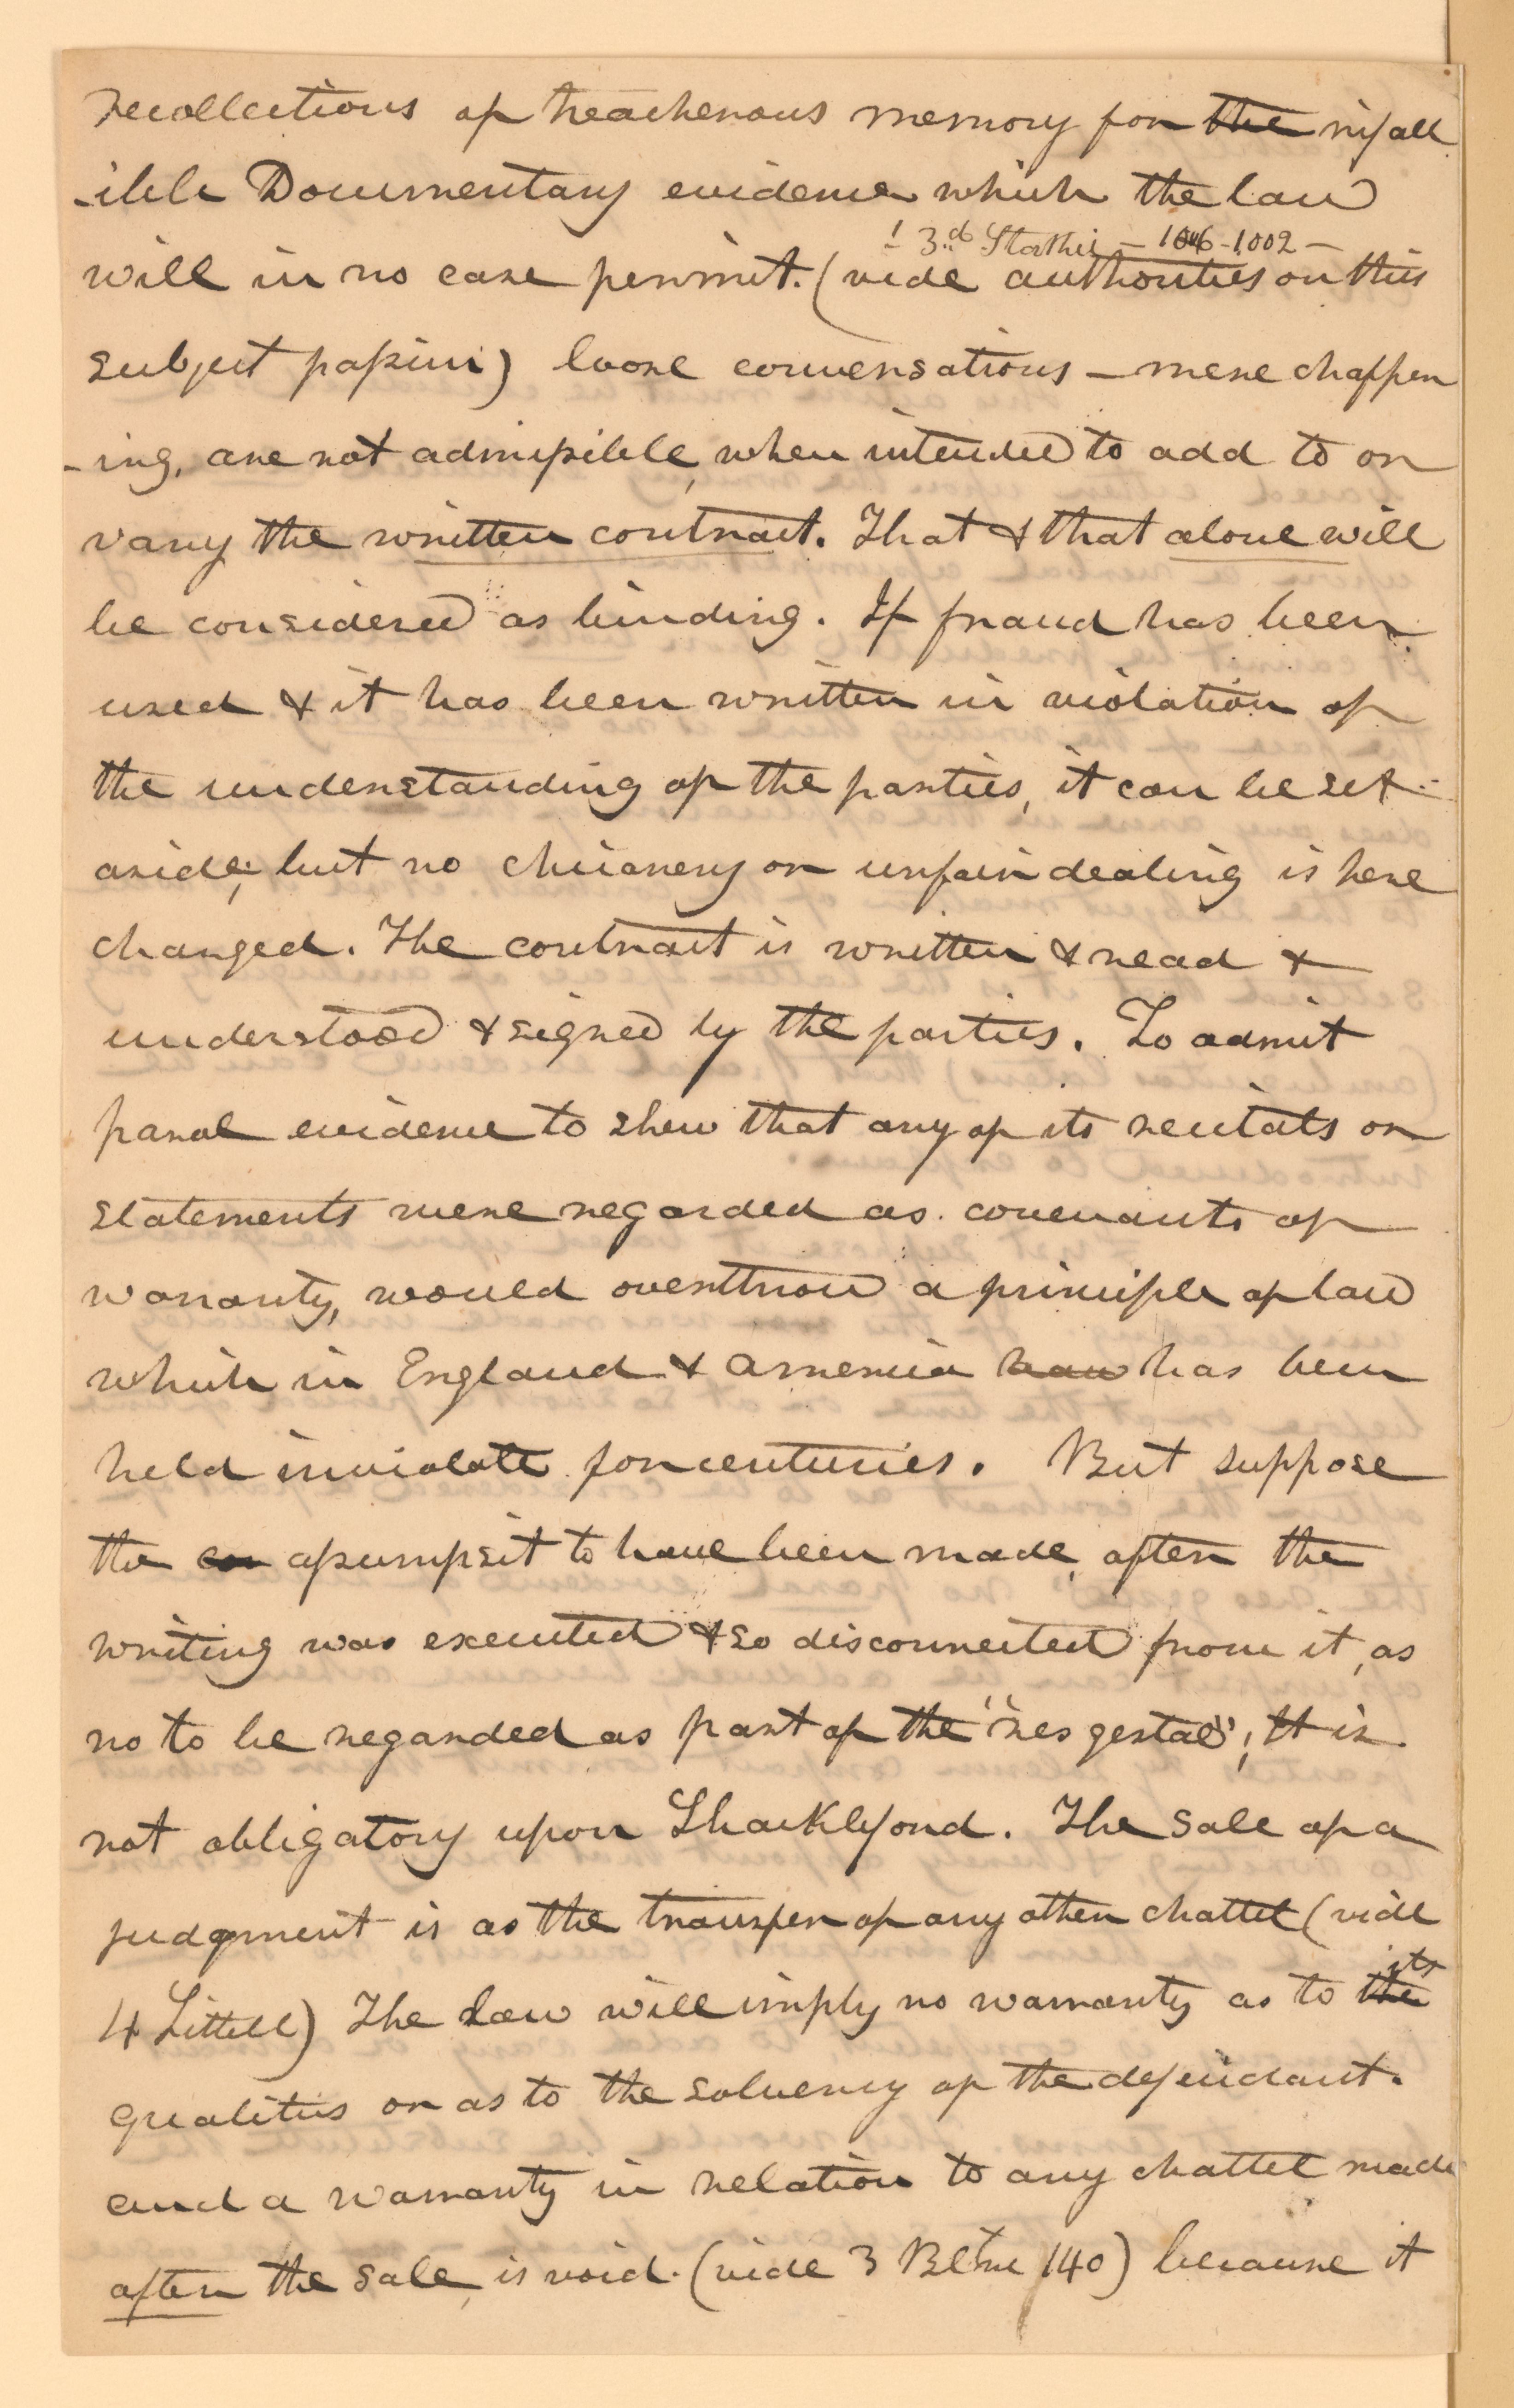 recollections of treacherous memory for the infall
-ible Documentary evidence which the law
! 3.d Starkie – 1006-1002 –
will in no case permit. (vide authorities on this
subject passim) loose conversations – mere chaffer
-ing, are not admissible, when intended to add to or
vary the written contract. That & that alone will
be considered as binding. If fraud has been
used & it has been written in violation of
the understanding of the parties, it can be set
aside; but no chicanery or unfair dealing is here
charged. The contract is written & read &
understood & signed by the parties. To admit
parol evidence to shew that any of its recitals or
statements were regarded as covenants of
warranty, would overthrow a principle of law
which in England & America has been
held inviolate for centuries. But suppose
the assumpsit to have been made, after the
writing was executed & so disconnected from it, as
no to be regarded as part of the "res gestae", It is
not obligatory upon Shackleford. The sale of a
judgment is as the transfer of any other chattel (vide
its
4 Littell) The law will imply no warranty as to the
qualities or as to the solvency of the defendant.
and a warranty in relation to any chattel made
after the sale, is void. (vide 3 140) because it